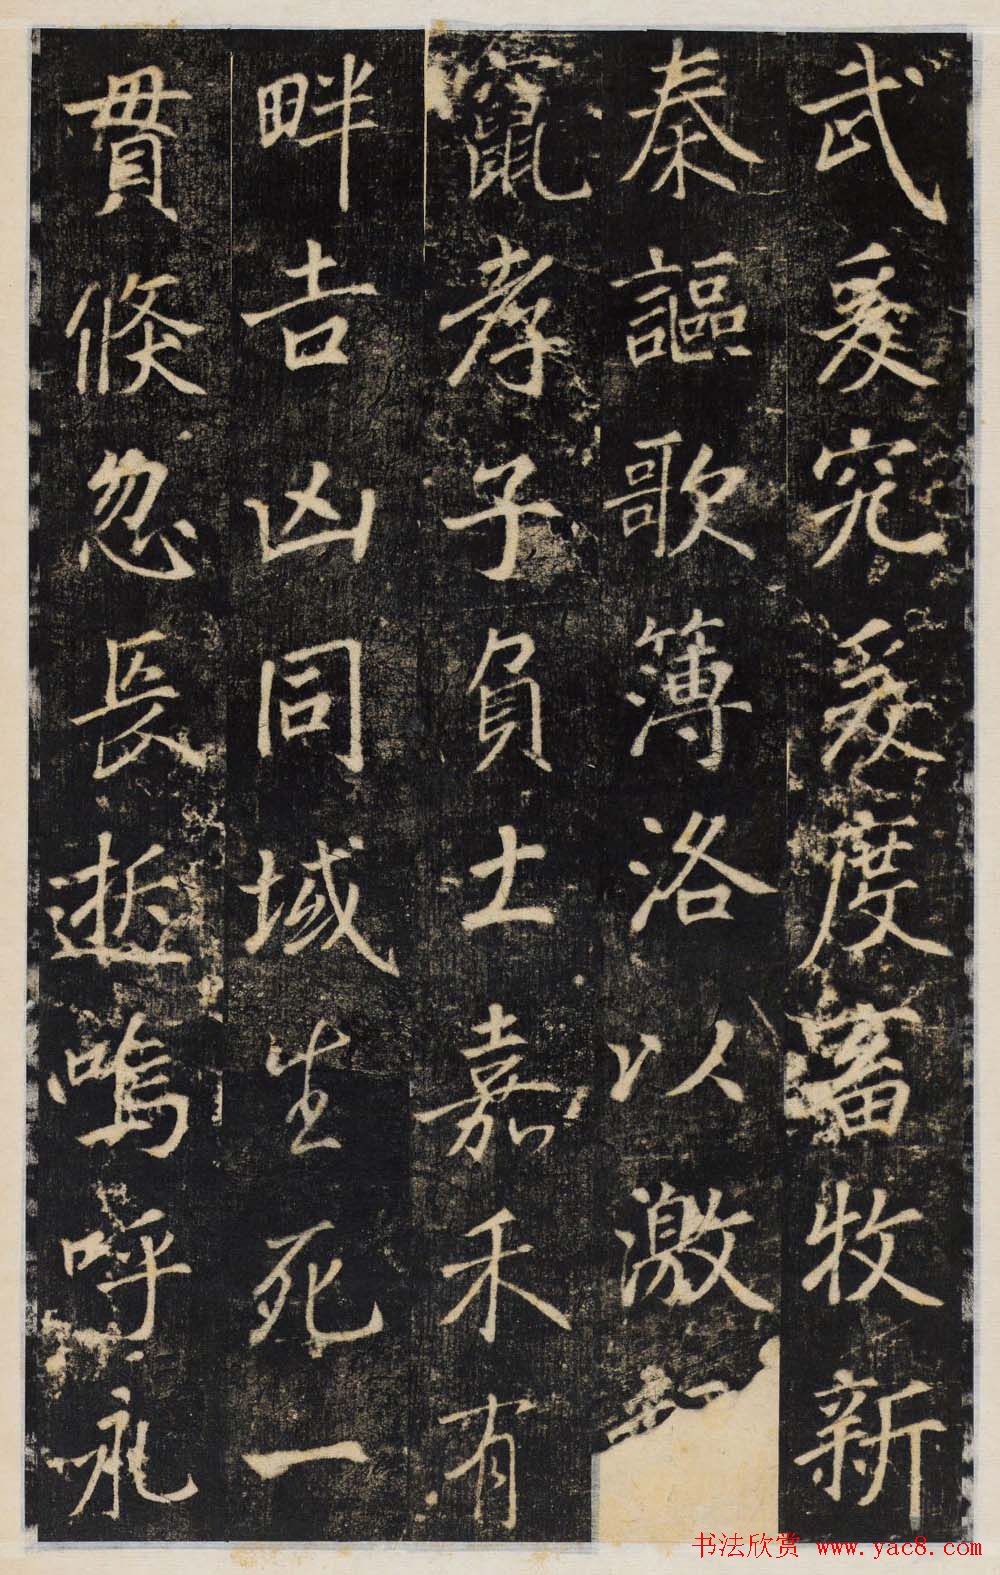 武爰究爰度畜牧新
秦謳歌簿洛以激
竄孝子負土嘉禾有
畔吉凶同域生死一
貫倐忽長逝嗚呼永
书法欣赏 www.yac8.com